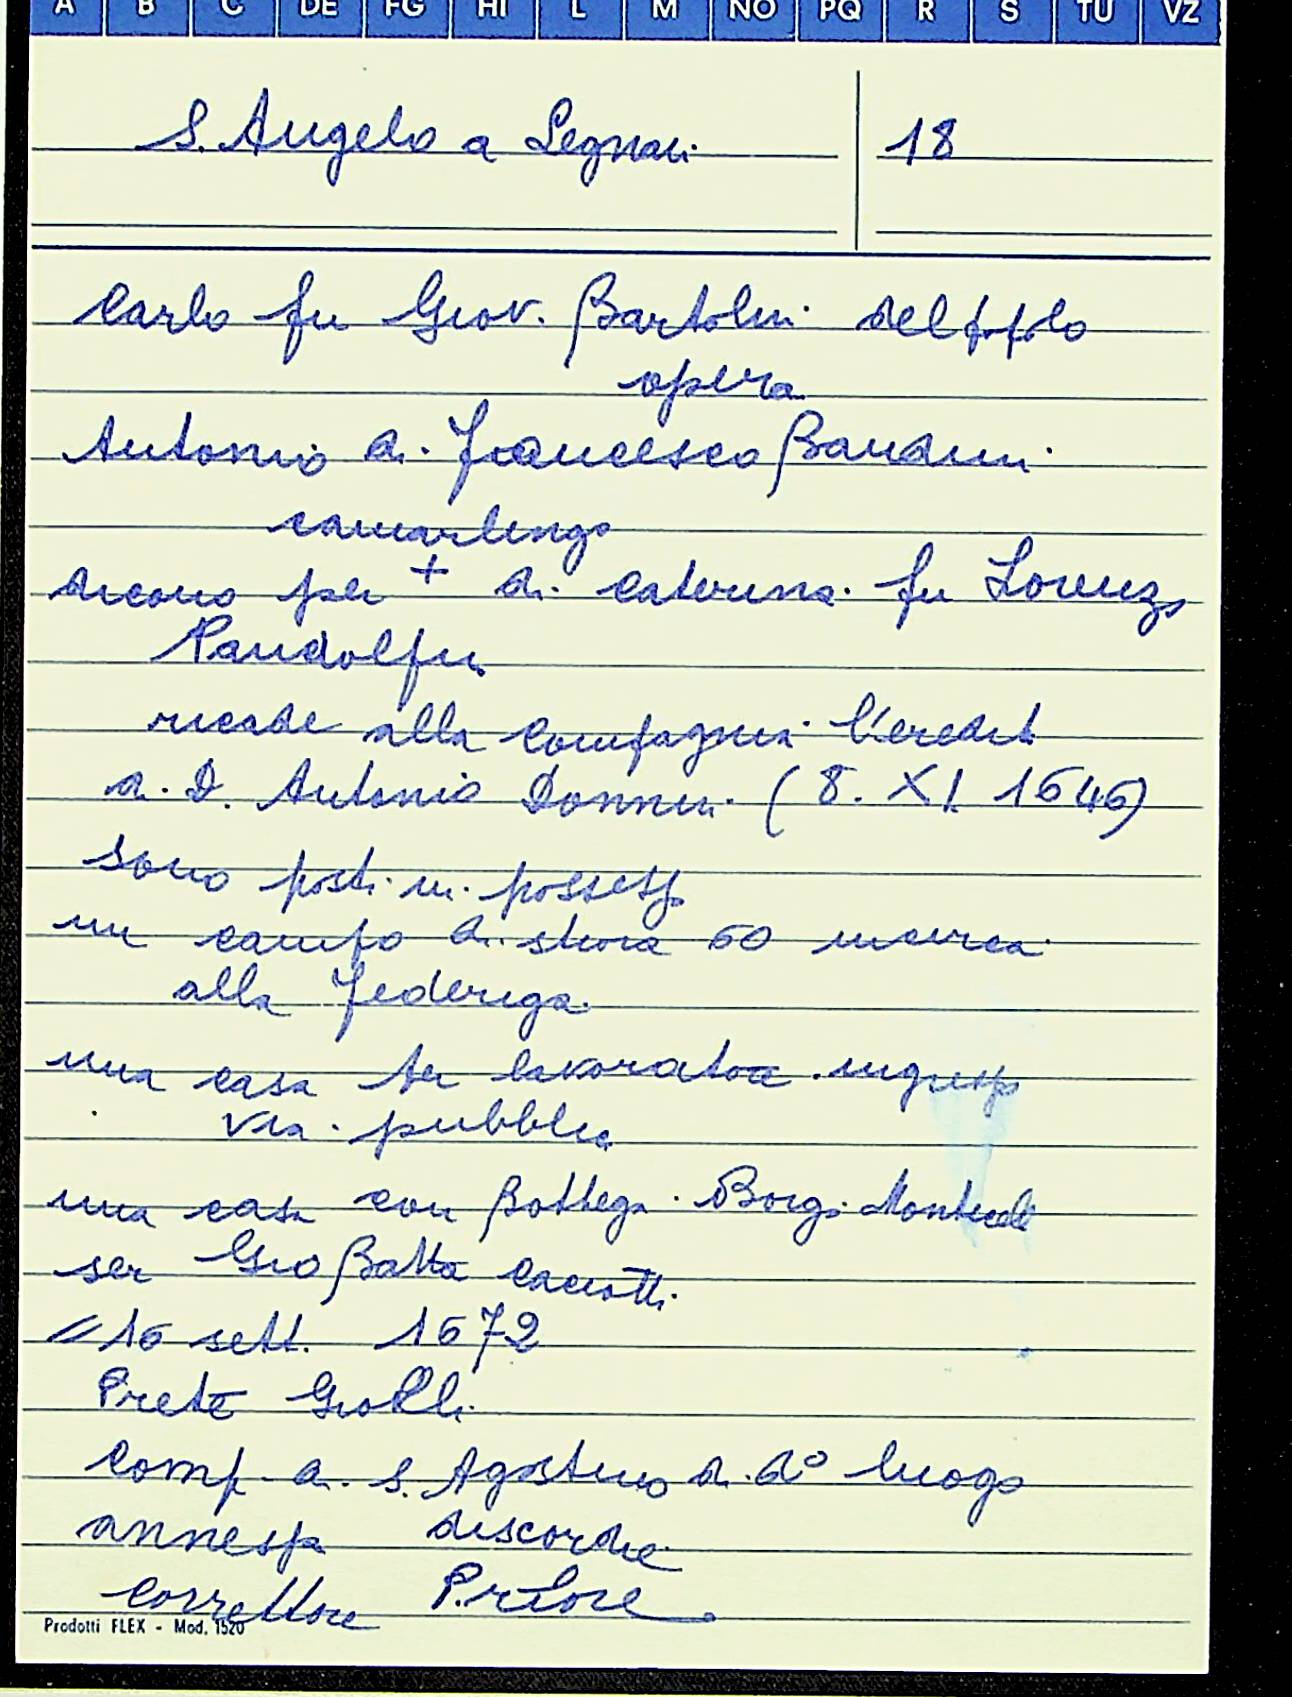 A B C DE FG HI L M NO PQ R S TU VZ
S. Angelo a Legnaii 18
Carlo fu Giov. Bartolini del popolo
opera
Antonio di Francesco Bandini
camarlengo
dicono per + di Caterina fu Lorenzo
Pandolfini
ricade alla compagnia l'eredit
di D. Antonio Donnini (8. XI 1646)
sono posti in possesso
un campo di stiora 60 incirca
alla Federiga
una casa da lavoratore ingresso
via pubblica
una casa con Bottega Borgo Monticelli
ser Gio Batta Caciotti
16 sett. 1672
Prete
Comp di S. Agostino di do luogo
annessa discordie
correttore Priore
Prodotti FLEX - Mod. 1520